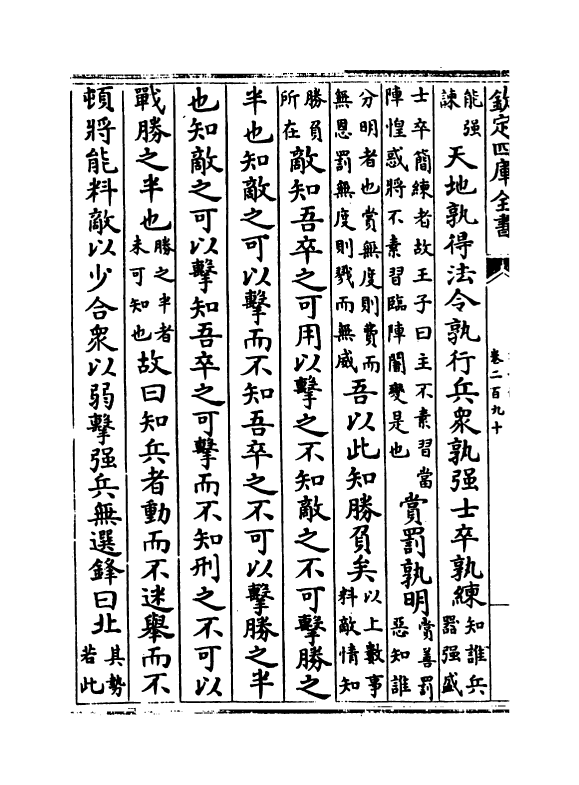 欽定四庫全書
卷二百九十
能强諫天地孰得法令孰行兵衆孰强士卒孰練知誰兵器强盛
士卒簡練者故王子曰主不素習當陣惶惑將不素習臨陣闇變是也賞罰孰明賞善罰惡知誰
分明者也賞無度則費而無恩罰無度則戮而無威吾以此知勝負矣以上數事料敵情知
勝負所在敵知吾卒之可用以擊之不知敵之不可擊勝之
半也知敵之可以擊而不知吾卒之不可以擊勝之半
也知敵之可以擊知吾卒之可擊而不知刑之不可以
戰勝之半也勝之半者未可知也故曰知兵者動而不迷舉而不
頓將能料敵以少合衆以弱擊强兵無選鋒曰北其勢若此